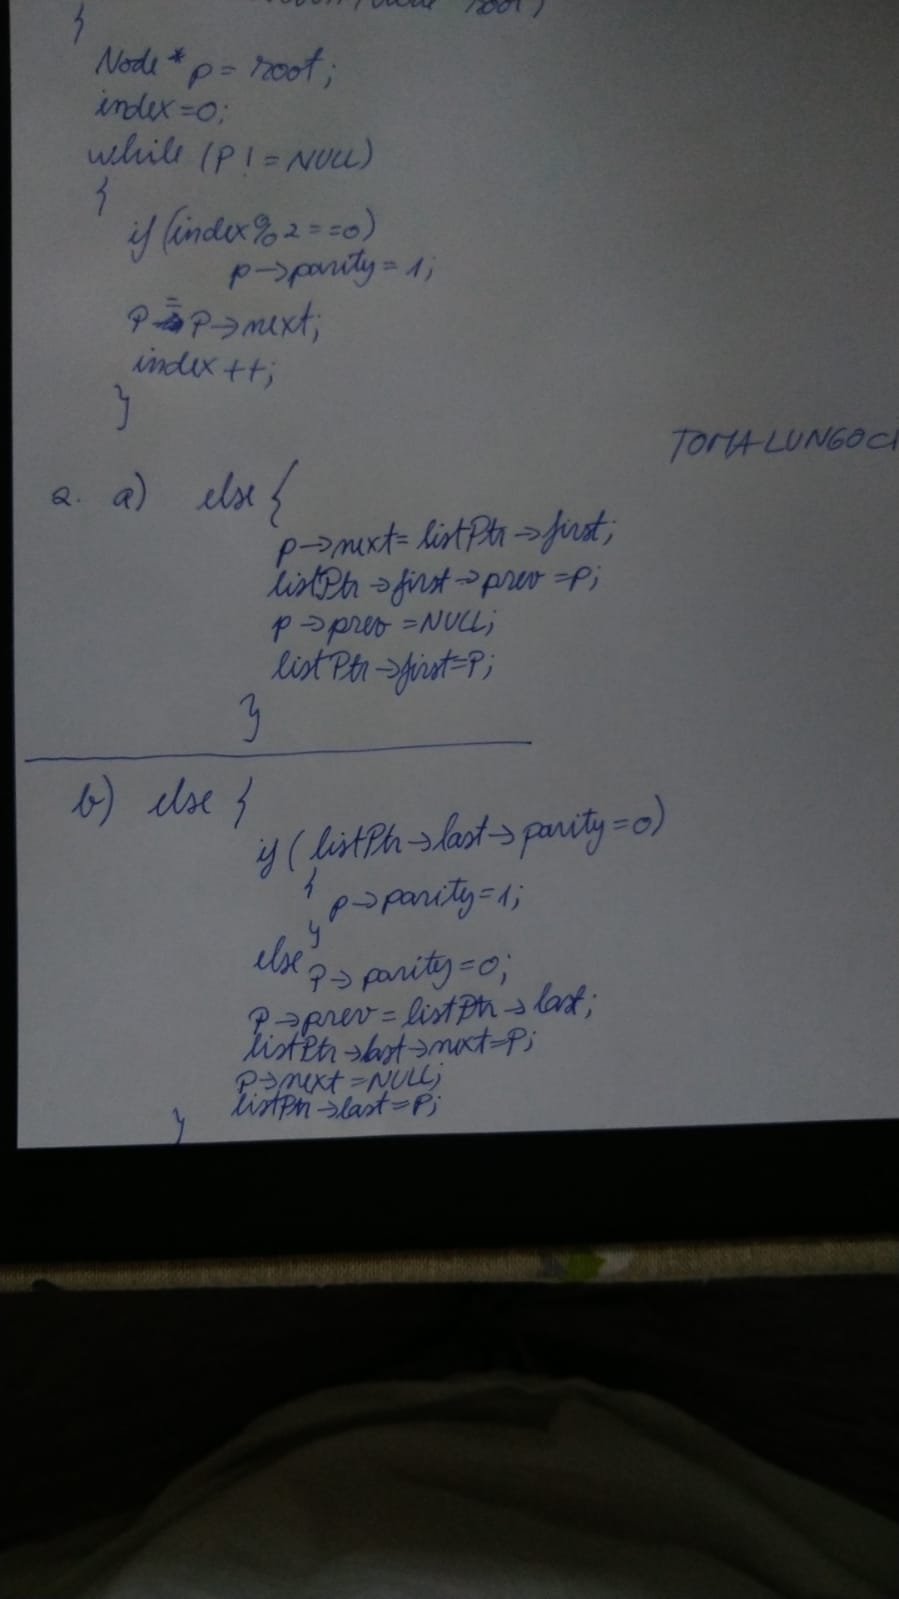 root)
{
Node* p = root;
index=0;
while (p != NULL)
{
if (index%2==0)
p->parity=1;
p = p->next;
index++;
}
TOMA LUNGOCI
2. a) else {
p->next=listPtr->first;
listPtr->first->prev=p;
p->prev=NULL;
listPtr->first=p;
}
b) else {
if (listPtr->last->parity=0)
{
p->parity=1;
}
else
p->parity=0;
p->prev=listPtr->last;
listPtr->last->next=p;
p->next=NULL;
listPtr->last=p;
}